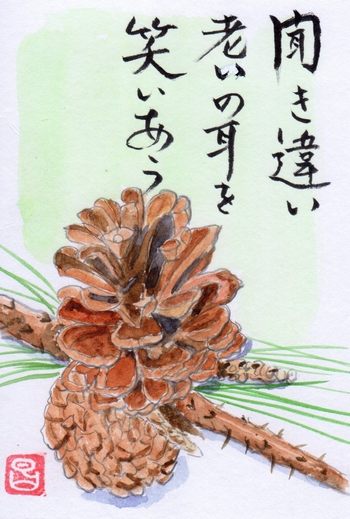 聞き違い
老いの耳を
笑いあう